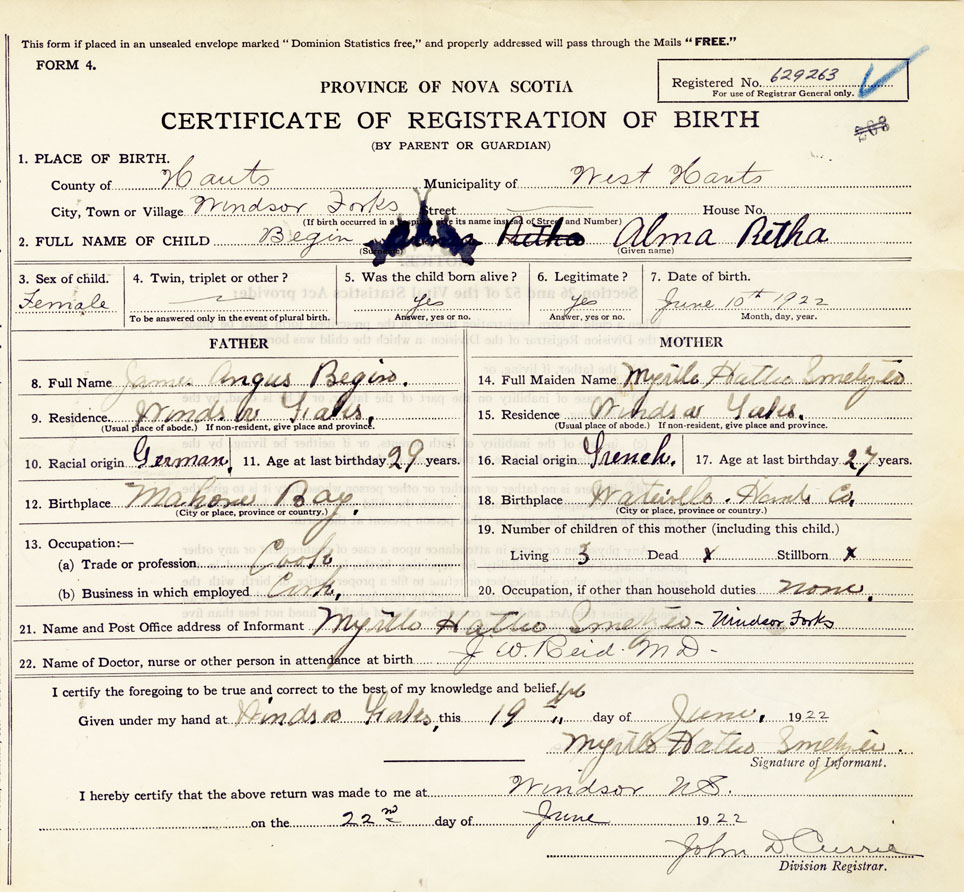 This form if placed in an unsealed envelope marked "Dominion Statistics free," and properly addressed will pass through the Mails "FREE."
FORM 4.
Registered No. 629263
For use of Registrar General only.
PROVINCE OF NOVA SCOTIA
CERTIFICATE OF REGISTRATION OF BIRTH
(BY PARENT OR GUARDIAN)
1. PLACE OF BIRTH.
County of Hants Municipality of West Hants
City, Town or Village Windsor Forks Street House No.
(If birth occurred in a give its name instead of Street and Number)
2. FULL NAME OF CHILD Begin Alma Retha Alma Retha
(Surname) (Given name)
3. Sex of child. 4. Twin, triplet or other? 5. Was the child born alive? 6. Legitimate? 7. Date of birth.
Female yes yes June 10th 1922
To be answered only in the event of plural birth. Answer, yes or no. Answer, yes or no. Month, day, year.
FATHER
8. Full Name James Angus Begin.
9. Residence Windsor Forks.
(Usual place of abode.) If non-resident, give place and province.
10. Racial origin German. 11. Age at last birthday 29 years.
12. Birthplace Mahone Bay.
(City or place, province or country.)
13. Occupation:—
(a) Trade or profession Cook
(b) Business in which employed
MOTHER
14. Full Maiden Name Myrtle Hattie
15. Residence Windsor Forks.
(Usual place of abode.) If non-resident, give place and province.
16. Racial origin French. 17. Age at last birthday 27 years.
18. Birthplace Waterville. Hants Co.
(City or place, province or country.)
19. Number of children of this mother (including this child.)
Living 3 Dead x Stillborn x
20. Occupation, if other than household duties none.
21. Name and Post Office address of Informant Myrtle Hattie - Windsor Forks
22. Name of Doctor, nurse or other person in attendance at birth J W. Reid. M D-
I certify the foregoing to be true and correct to the best of my knowledge and belief.
Given under my hand at Windsor Forks, this 19 th day of June. 1922
Myrtle Hattie
Signature of Informant.
I hereby certify that the above return was made to me at Windsor N.S.
on the 22nd day of June 1922
John D Currie
Division Registrar.